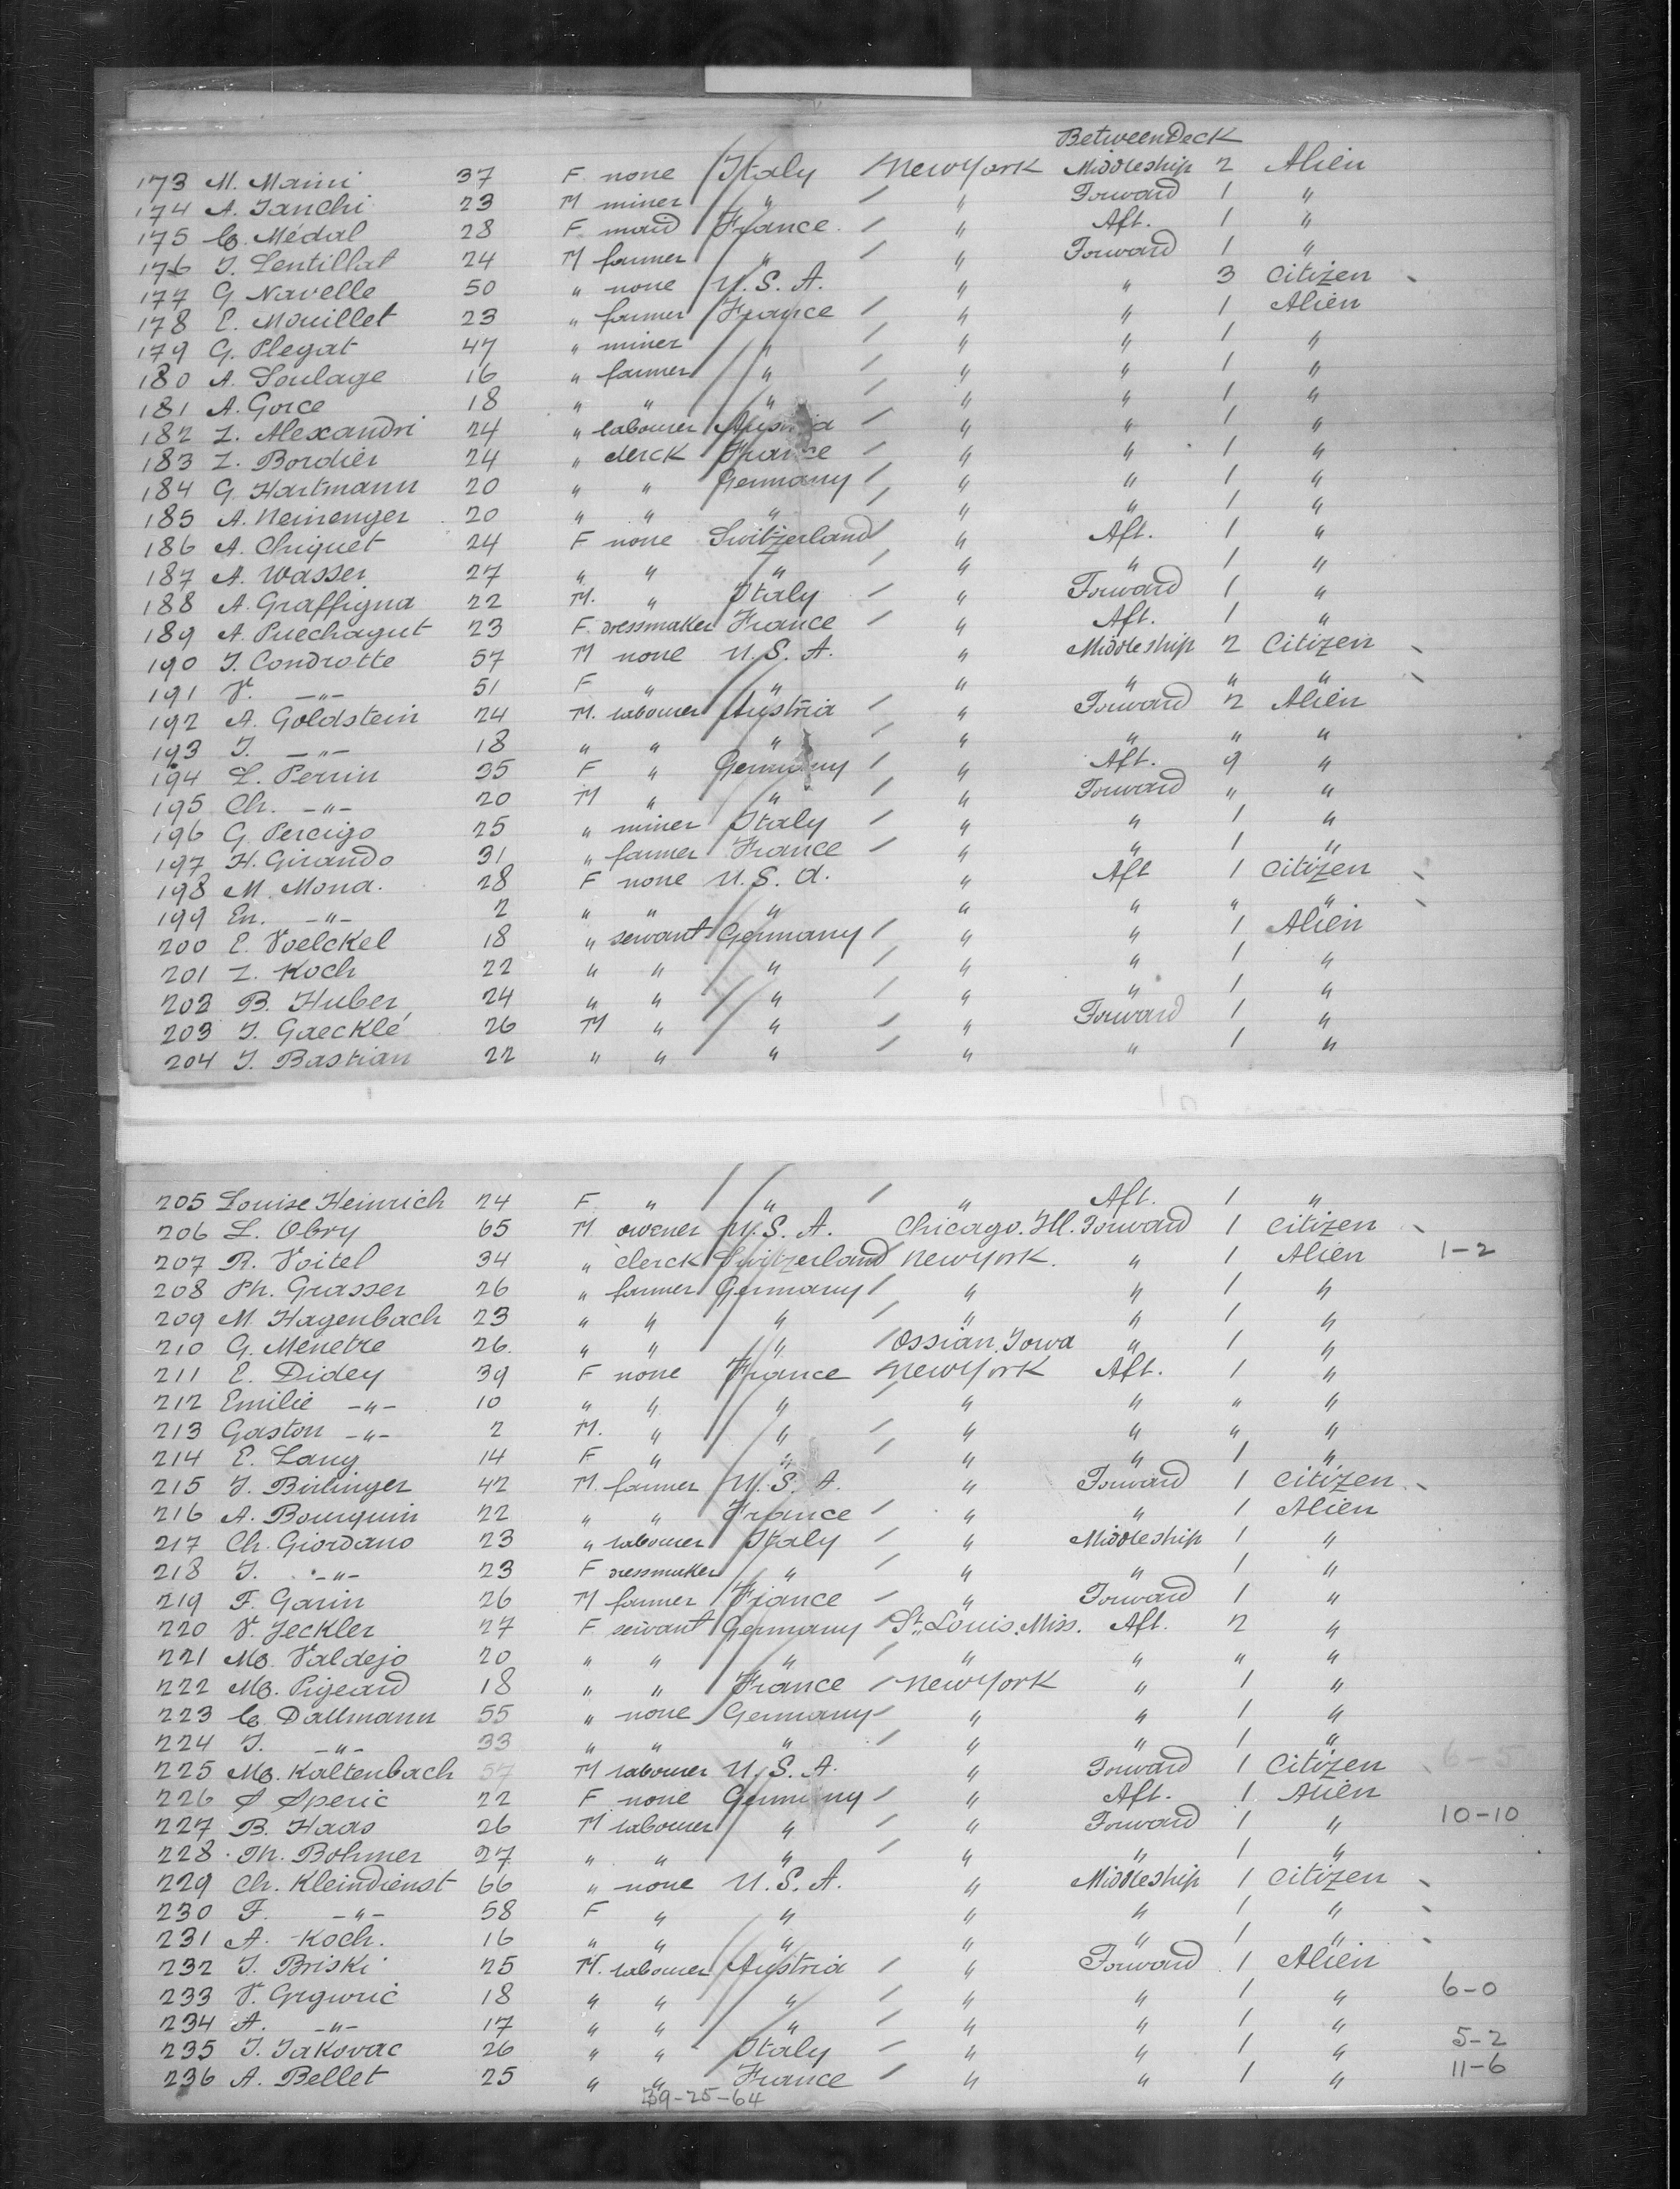 BetweenDeck
173 M. Maini 37 F. none Italy / NewYork Middleship 2 Alien
174 A. Ianchi 23 M miner " / " Forward 1 "
175 C. Médal 28 F. maid France / " Aft. 1 "
176 J. Lentillat 24 M farmer " / " Forward 1 "
177 G Navelle 50 " none U.S.A. " " 3 Citizen
178 E. Mouillet 23 " farmer France / " " 1 Alien
179 G. Plegat 47 " miner " / " " 1 "
180 A. Soulage 16 " farmer " / " " 1 "
181 A. Gorce 18 " " " / " " 1 "
182 L. Alexandri 24 " labourer Austria / " " 1 "
183 L. Bordier 24 " clerck France / " " 1 "
184 G. Hartmann 20 " " Germany / " " 1 "
185 A. Neinenger 20 " " " / " " 1 "
186 A. Chiquet 24 F none Switzerland / " Aft. 1 "
187 A. Wasser 27 " " " / " " 1 "
188 A. Graffigna 22 M. " Italy / " Forward 1 "
189 A. Puechagut 23 F. dressmaker France / " Aft. 1 "
190 J. Condrotte 57 M none U.S.A. " Middleship 2 Citizen
191 V. -"- 51 F " " " " " "
192 A. Goldstein 24 M. labourer Austria / " Forward 2 Alien
193 J. -"- 18 " " " / " " " "
194 L. Perrin 35 F " Germany / " Aft. 9 "
195 Ch. -"- 20 M " " / " Forward " "
196 G. Percigo 25 " miner Italy / " " 1 "
197 H. Girando 31 " farmer France / " " 1 "
198 M. Mona. 28 F none U.S.A. " Aft 1 Citizen
199 En. -"- 2 " " " " " " "
200 E. Voelckel 18 " servant Germany / " " 1 Alien
201 L. Koch 22 " " " / " " 1 "
202 B. Huber 24 " " " / " " 1 "
203 J. Gaecklé 26 M " " / " Forward 1 "
204 J. Bastian 22 " " " / " " 1 "
205 Louise Heinrich 24 F. " " / " Aft. 1 "
206 L. Obry 65 M owener U.S.A. Chicago. Ill. Forward 1 Citizen
207 R. Voitel 34 " clerck Switzerland NewYork. " 1 Alien 1-2
208 Ph. Grasser 26 " farmer Germany / " " 1 "
209 M. Hagenbach 23 " " " / " " 1 "
210 G. Menetre 26. " " " / Ossian, Iowa " 1 "
211 E. Didey 39 F none France NewYork Aft. 1 "
212 Emilie -"- 10 " " " / " " " "
213 Gaston -"- 2 M. " " / " " " "
214 E. Lang 14 F " " / " " 1 "
215 J. Birlinger 42 M. farmer U.S.A. " Forward 1 Citizen
216 A. Bourquin 22 " " France / " " 1 Alien
217 Ch. Giordano 23 " labourer Italy / " Middleship 1 "
218 J. -"- 23 F dressmaker " / " " 1 "
219 F. Garin 26 M farmer France / " Forward 1 "
220 V. Jeckler 27 F. servant Germany / St. Louis. Miss. Aft. 2 "
221 M. Valdejo 20 " " " / " " " "
222 M. Pigeard 18 " " France / NewYork " 1 "
223 C. Dallmann 55 " none Germany / " " 1 "
224 J. -"- 33 " " " / " " 1 "
225 M. Kaltenbach 57 M labourer U.S.A. " Forward 1 Citizen
226 S Speric 22 F none Germany / " Aft. 1 Alien
227 B. Haas 26 M labourer " / " Forward 1 " 10-10
228 Th. Bohmer 27 " " " / " " 1 "
229 Ch. Kleindienst 66 " none U.S.A. " Middleship 1 Citizen
230 F. -"- 58 F " " " " 1 "
231 A. Koch. 16 " " " " " 1 "
232 J. Briski 25 M. labourer Austria / " Forward 1 Alien
233 V. Grguric 18 " " " / " " 1 " 6-0
234 A. -"- 17 " " " / " " 1 "
235 J. Jakovac 26 " " Italy / " " 1 " 5-2
236 A. Bellet 25 " " France / " " 1 " 11-6
39-25-64